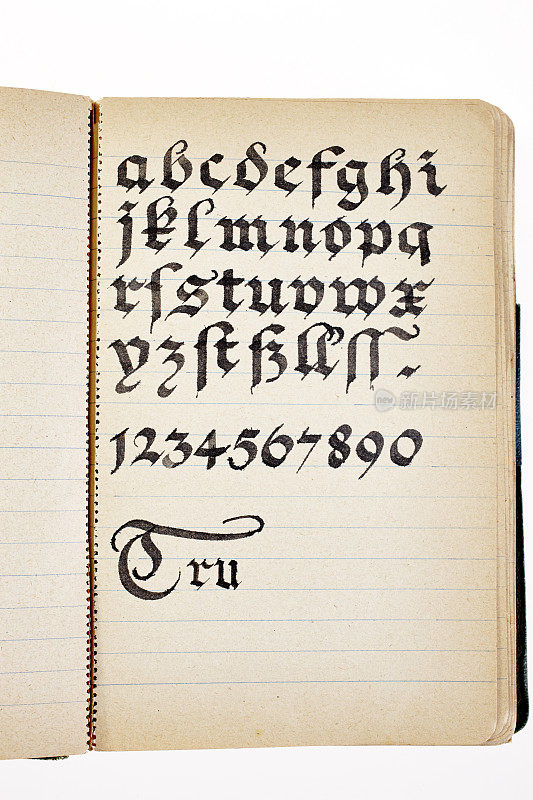 abcdefghi
jklmnopq
rſstuvwx
yzſtßllſſ-
1234567890
Tru
新片场素材